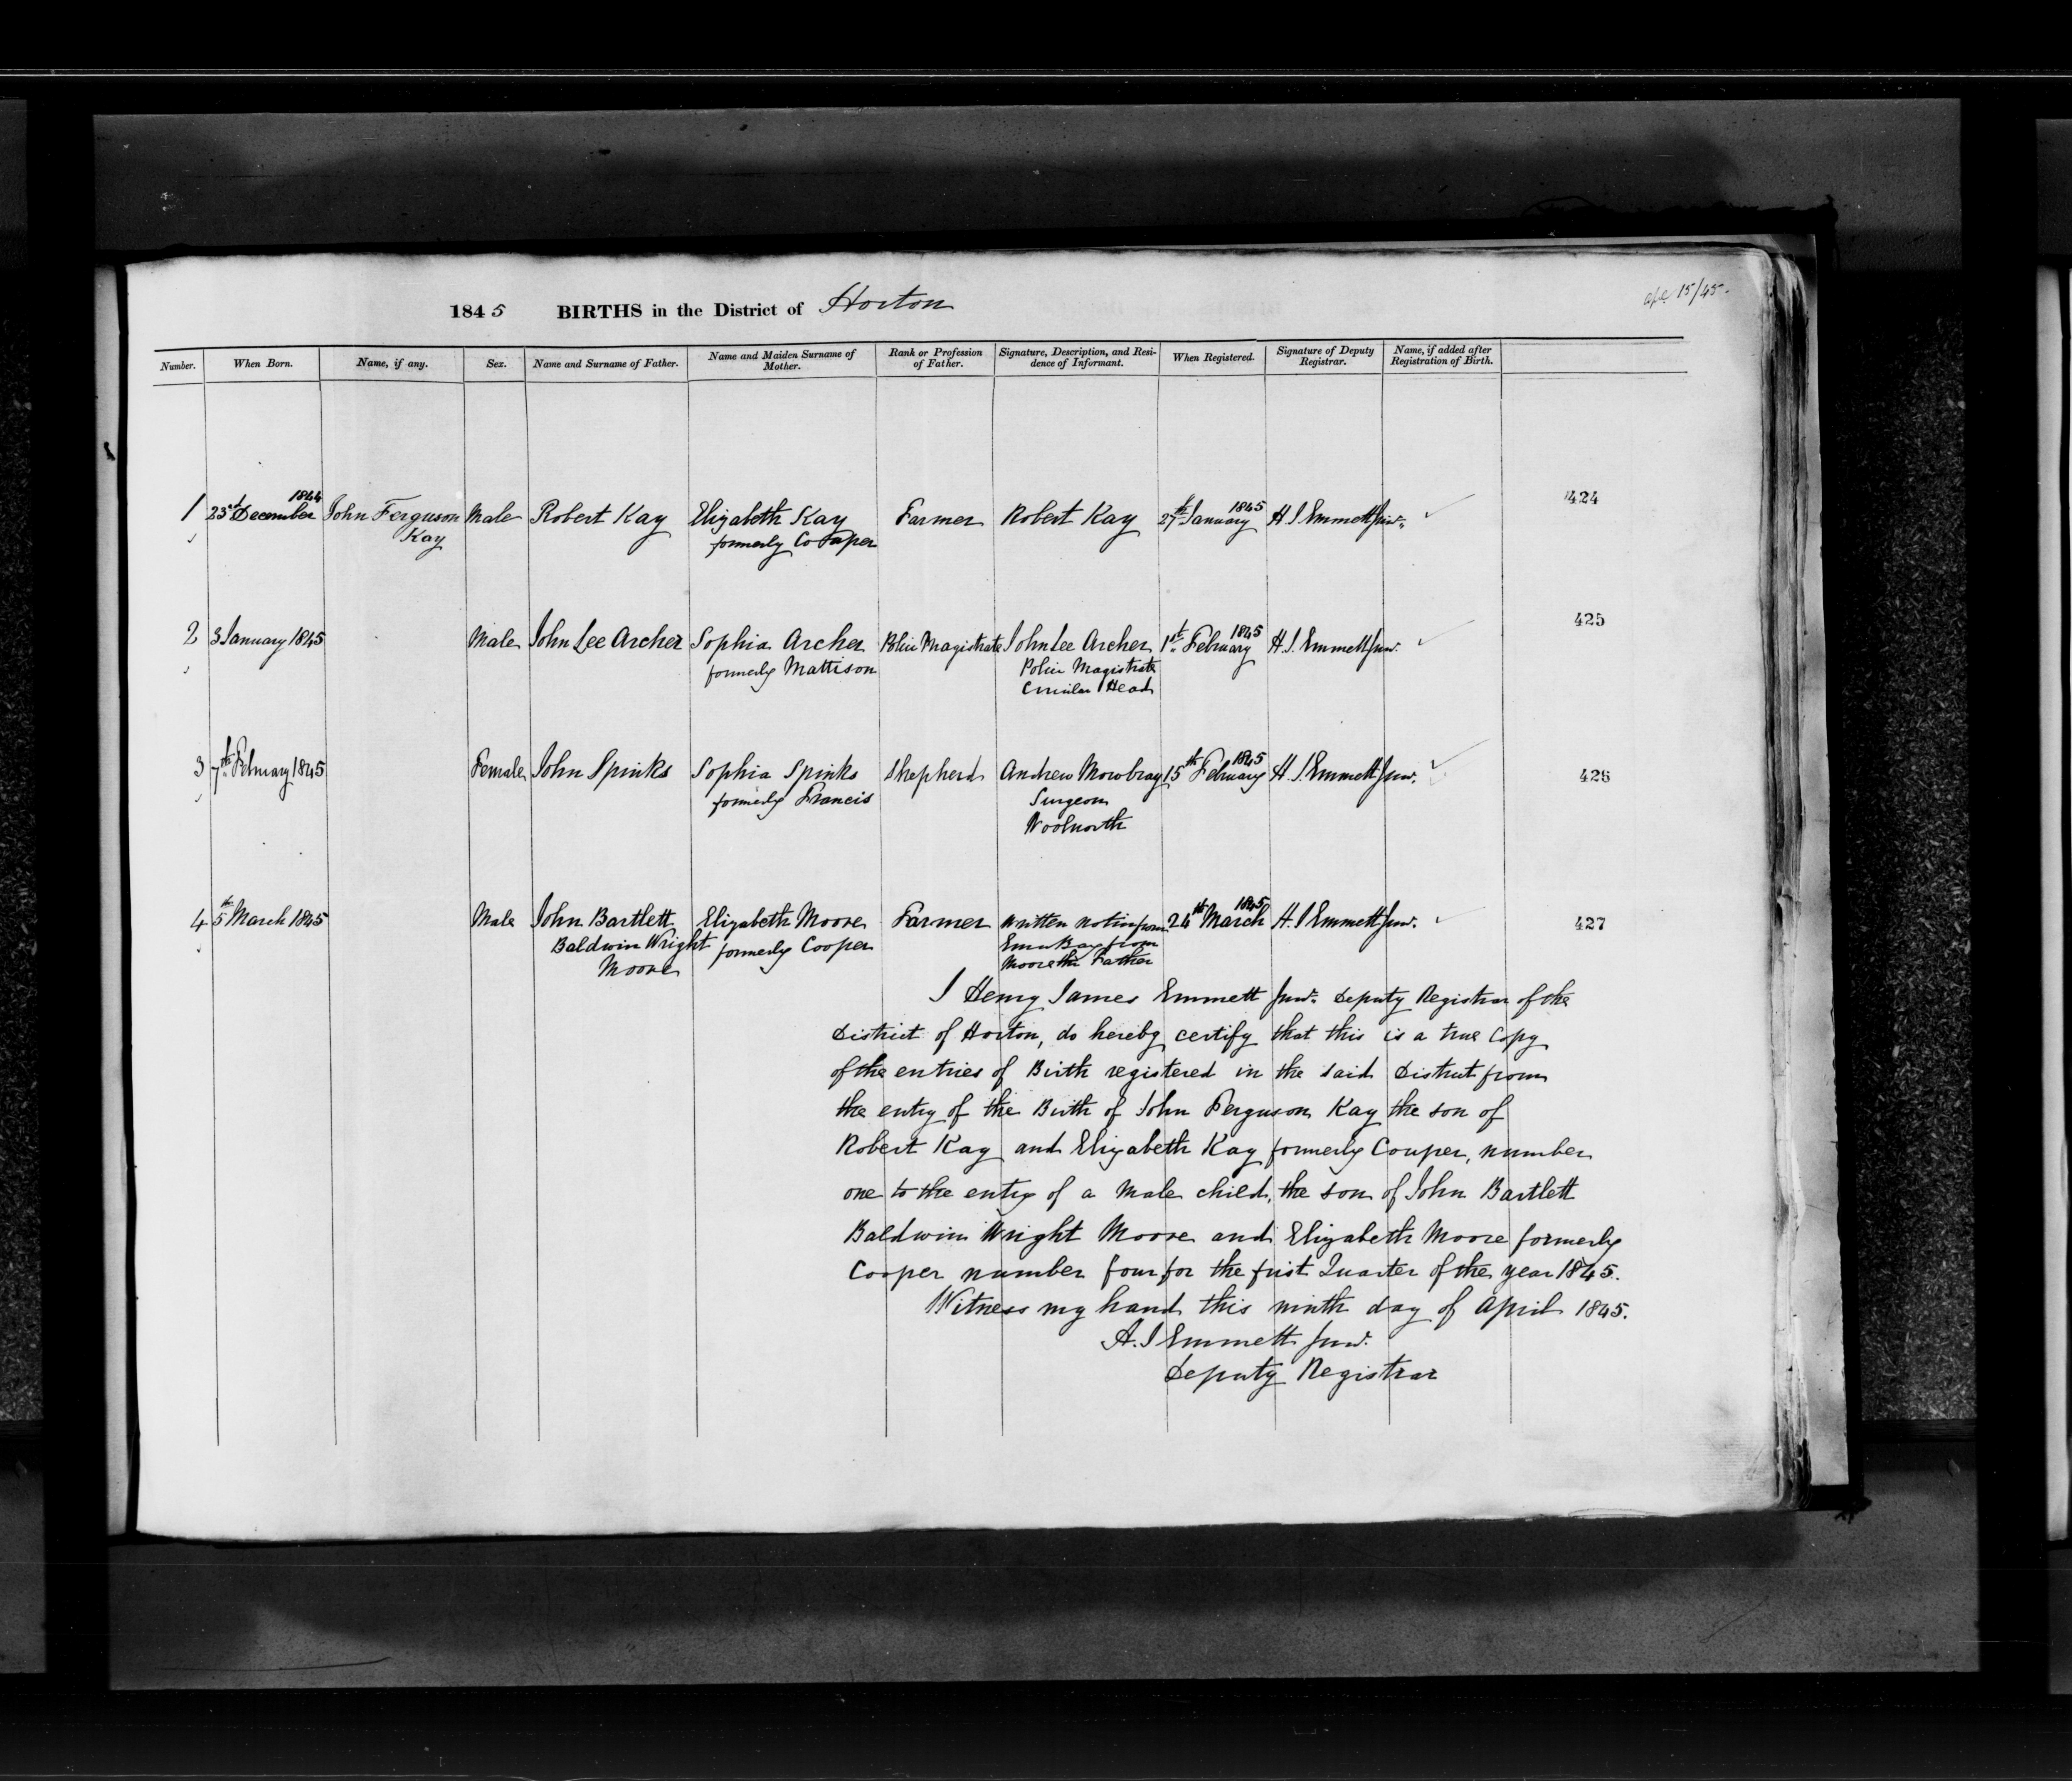 1845 BIRTHS in the District of Horton
15/45.
Number. When Born. Name, if any. Sex. Name and Surname of Father. Name and Maiden Surname of Mother. Rank or Profession of Father. Signature, Description, and Residence of Informant. When Registered. Signature of Deputy Registrar. Name, if added after Registration of Birth.
1 23d December 1844 John Ferguson Male Robert Kay Elizabeth Kay Farmer Robert Kay 27th January 1845 H J Emmett Junr. 424
Kay formerly Cooper
2 3 January 1845 Male John Lee Archer Sophia Archer Police Magistrate John Lee Archer 1st February 1845 H. J. Emmett Junr. 425
formerly Mattison Police Magistrate
Circular Head
3 7th February 1845 Female John Spinks Sophia Spinks Shepherd Andrew Mowbray 15th February 1845 H. J Emmett Junr. 426
formerly Francis Surgeon
Woolnorth
4 5th March 1845 Male John Bartlett Elizabeth Moore Farmer Written Notice from 24th March 1845 H. J Emmett Junr. 427
Baldwin Wright formerly Cooper Emu Bay from
Moore Moore the Father
I Henry James Emmett Junr. Deputy Registrar of the
District of Horton, do hereby certify that this is a true Copy
of the entries of Birth registered in the said District from
the entry of the Birth of John Ferguson Kay the son of
Robert Kay and Elizabeth Kay formerly Couper, number
one to the entry of a Male child, the son of John Bartlett
Baldwin Wright Moore and Elizabeth Moore formerly
Cooper number four for the first Quarter of the year 1845.
Witness my hand this ninth day of April 1845.
H. J Emmett Junr.
Deputy Registrar